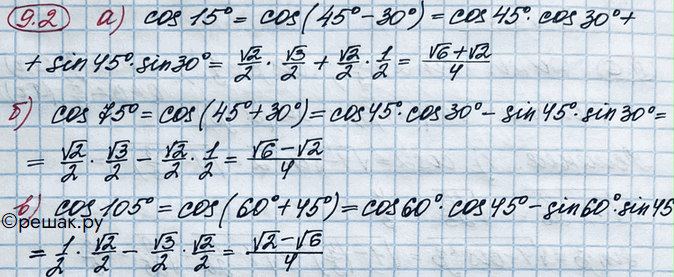 9.2 а) cos 15° = cos(45° − 30°) = cos 45° · cos 30° +
+ sin 45° · sin 30° = √2/2 · √3/2 + √2/2 · 1/2 = (√6 + √2)/4
б) cos 75° = cos(45° + 30°) = cos 45° · cos 30° − sin 45° · sin 30° =
= √2/2 · √3/2 − √2/2 · 1/2 = (√6 − √2)/4
в) cos 105° = cos(60° + 45°) = cos 60° · cos 45° − sin 60° · sin 45
©решак.ру
= 1/2 · √2/2 − √3/2 · √2/2 = (√2 − √6)/4